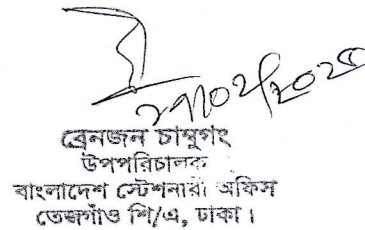 ২৭/০২/২০২৫
ব্রেনজন চাম্বুগং
উপপরিচালক
বাংলাদেশ স্টেশনারী অফিস
তেজগাঁও শি/এ, ঢাকা।